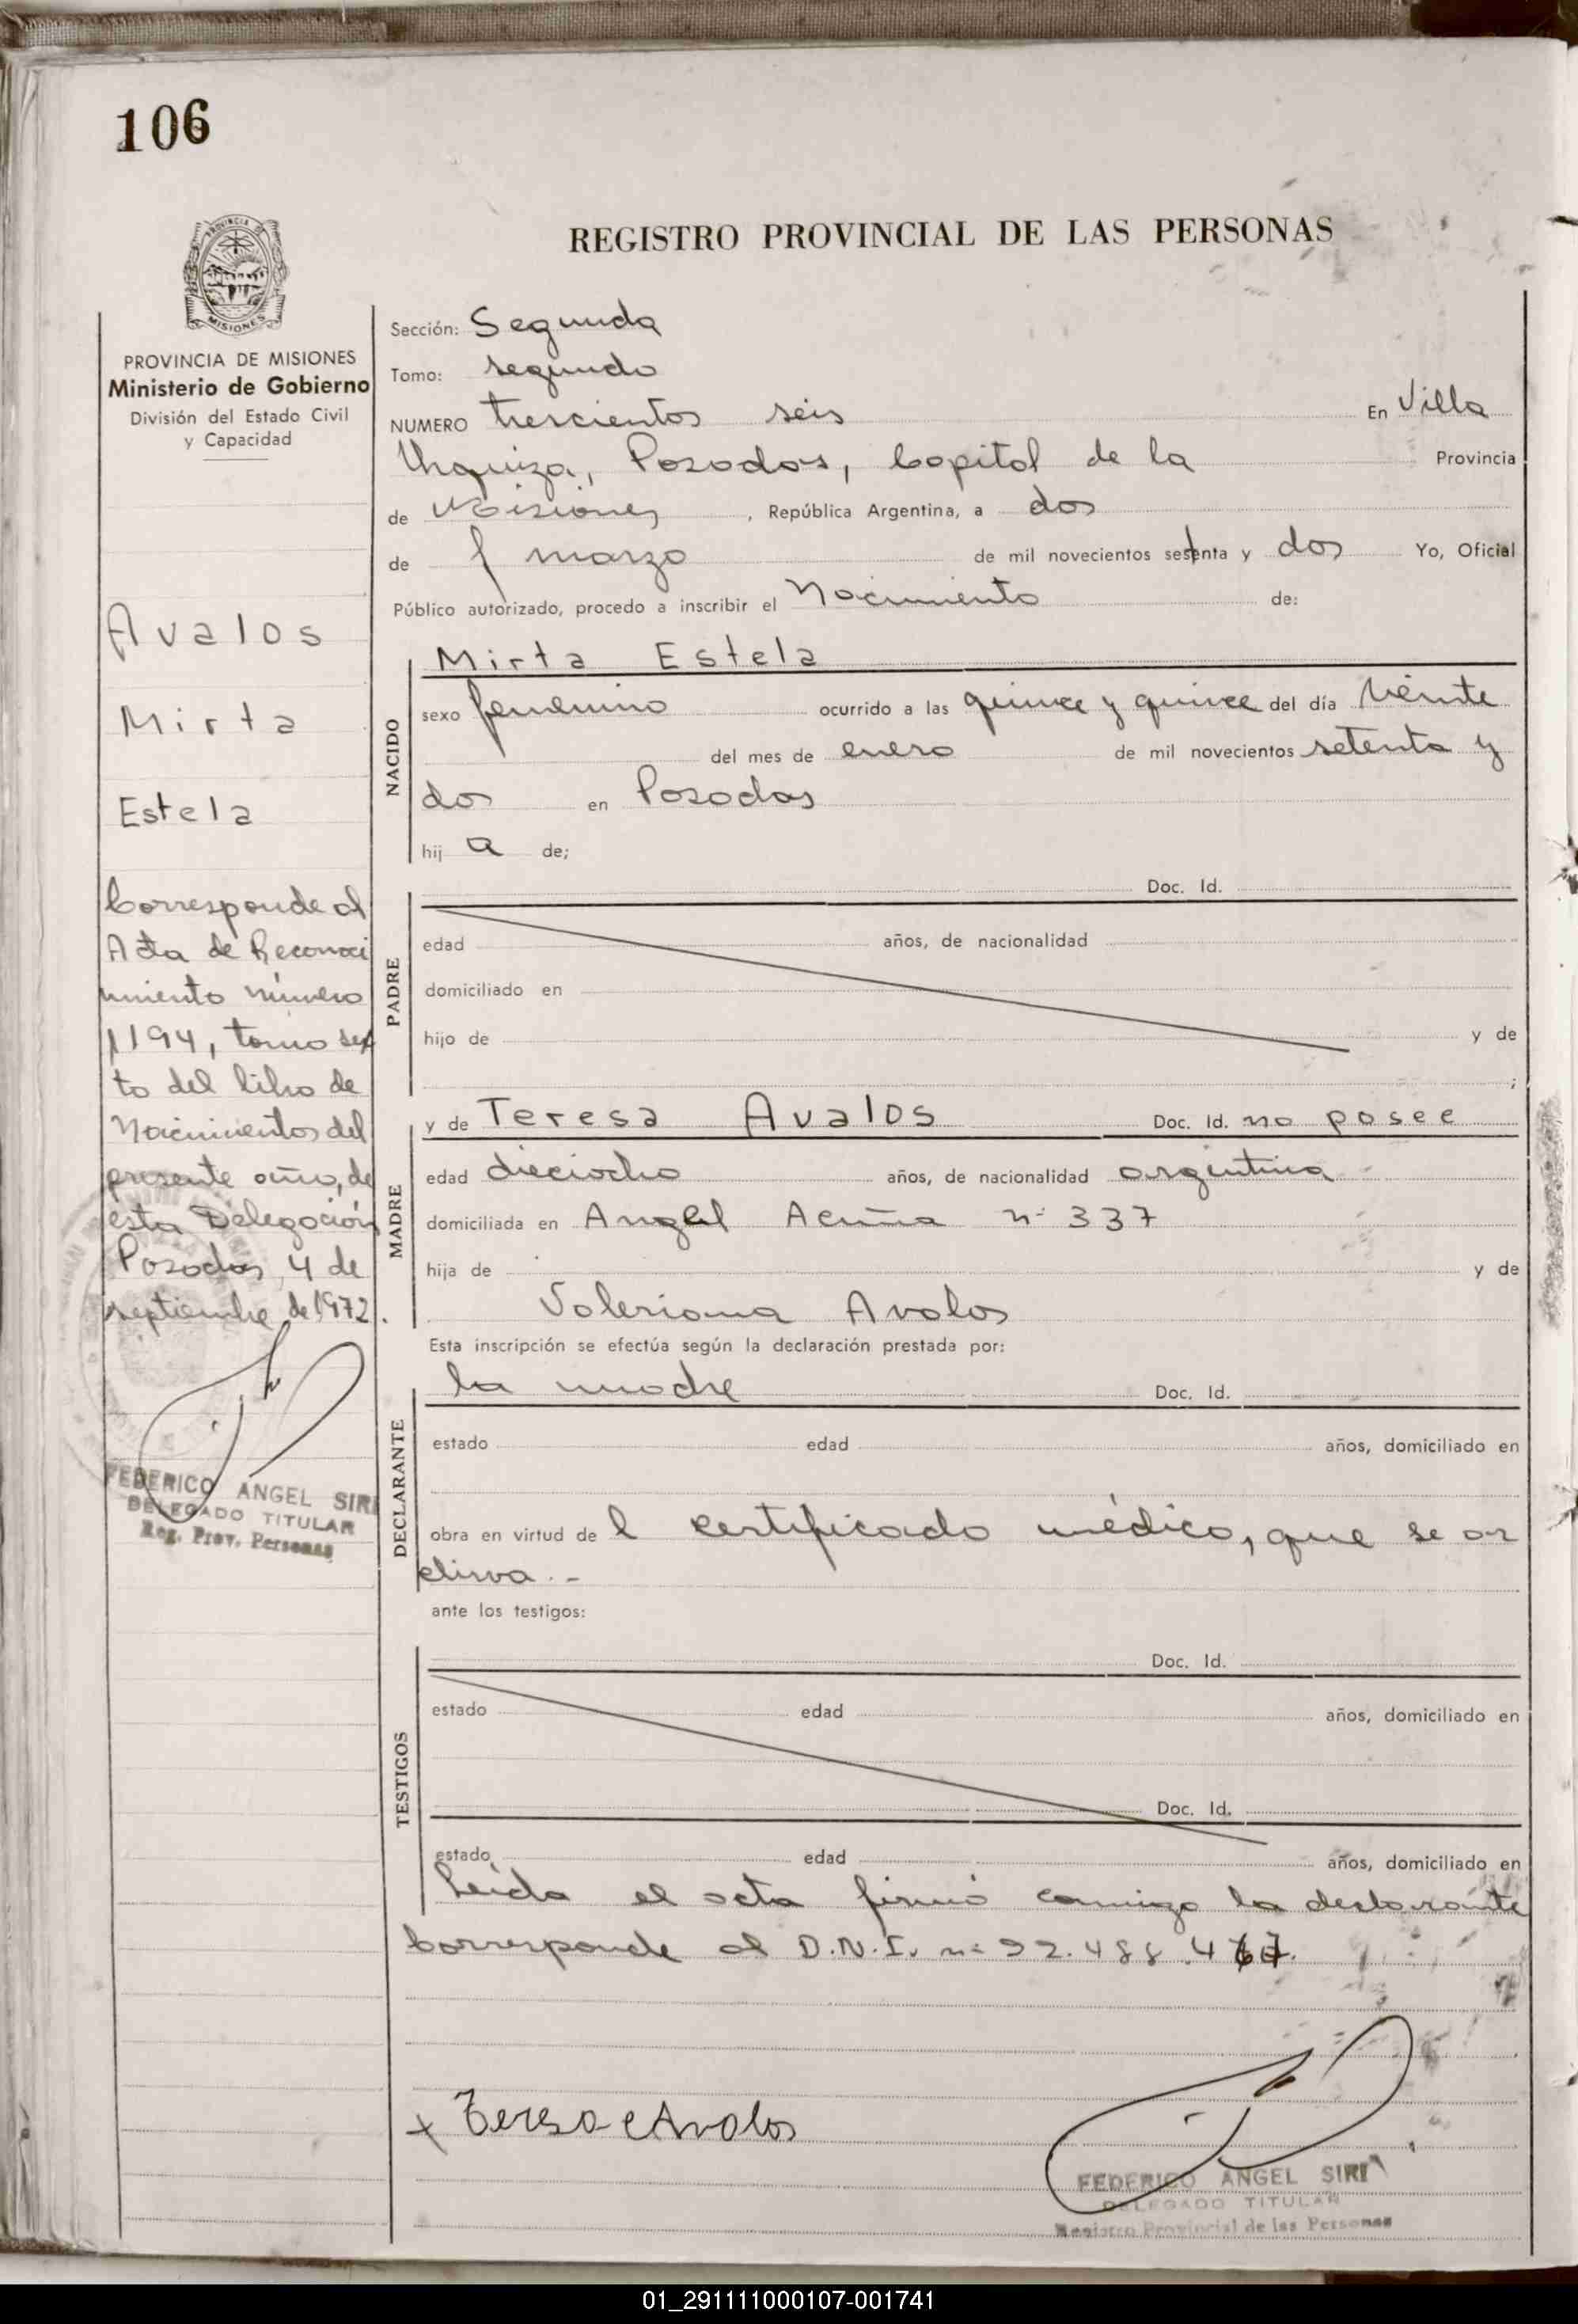 106
REGISTRO PROVINCIAL DE LAS PERSONAS
PROVINCIA DE MISIONES
MISIONES
PROVINCIA DE MISIONES
Ministerio de Gobierno
División del Estado Civil
y Capacidad
Avalos
Mirta
Estela
Corresponde al
Acta de Reconoci
miento número
1194, tomo sex
to del libro de
Nacimientos del
presente año, de
esta Delegación
Posadas, 4 de
septiembre de 1972.
FEDERICO ANGEL SIRI
DELEGADO TITULAR
Reg. Prov. Personas
Sección: Segunda
Tomo: segundo
NUMERO trescientos seis En Villa
Urquiza, Posadas, Capital de la Provincia
de Misiones, República Argentina, a dos
de marzo de mil novecientos setenta y dos Yo, Oficial
Público autorizado, procedo a inscribir el Nacimiento de:
NACIDO
Mirta Estela
sexo femenino ocurrido a las quince y quince del día veinte
del mes de enero de mil novecientos setenta y
dos en Posadas
hij a de;
PADRE
Doc. Id.
edad años, de nacionalidad
domiciliado en
hijo de y de
;
MADRE
y de Teresa Avalos Doc. Id. no posee
edad dieciocho años, de nacionalidad argentina
domiciliada en Angel Acuña nº 337
hija de y de
Valeriana Avalos
Esta inscripción se efectúa según la declaración prestada por:
DECLARANTE
la madre Doc. Id.
estado edad años, domiciliado en
obra en virtud de l certificado médico, que se ar
chiva.-
ante los testigos:
TESTIGOS
Doc. Id.
estado edad años, domiciliado en
Doc. Id.
estado edad años, domiciliado en
Leída el acta firmó conmigo la declarante
Corresponde al D.N.I. nº
+ Teresa Avalos
FEDERICO ANGEL SIRI
DELEGADO TITULAR
Registro Provincial de las Personas
01_291111000107-001741